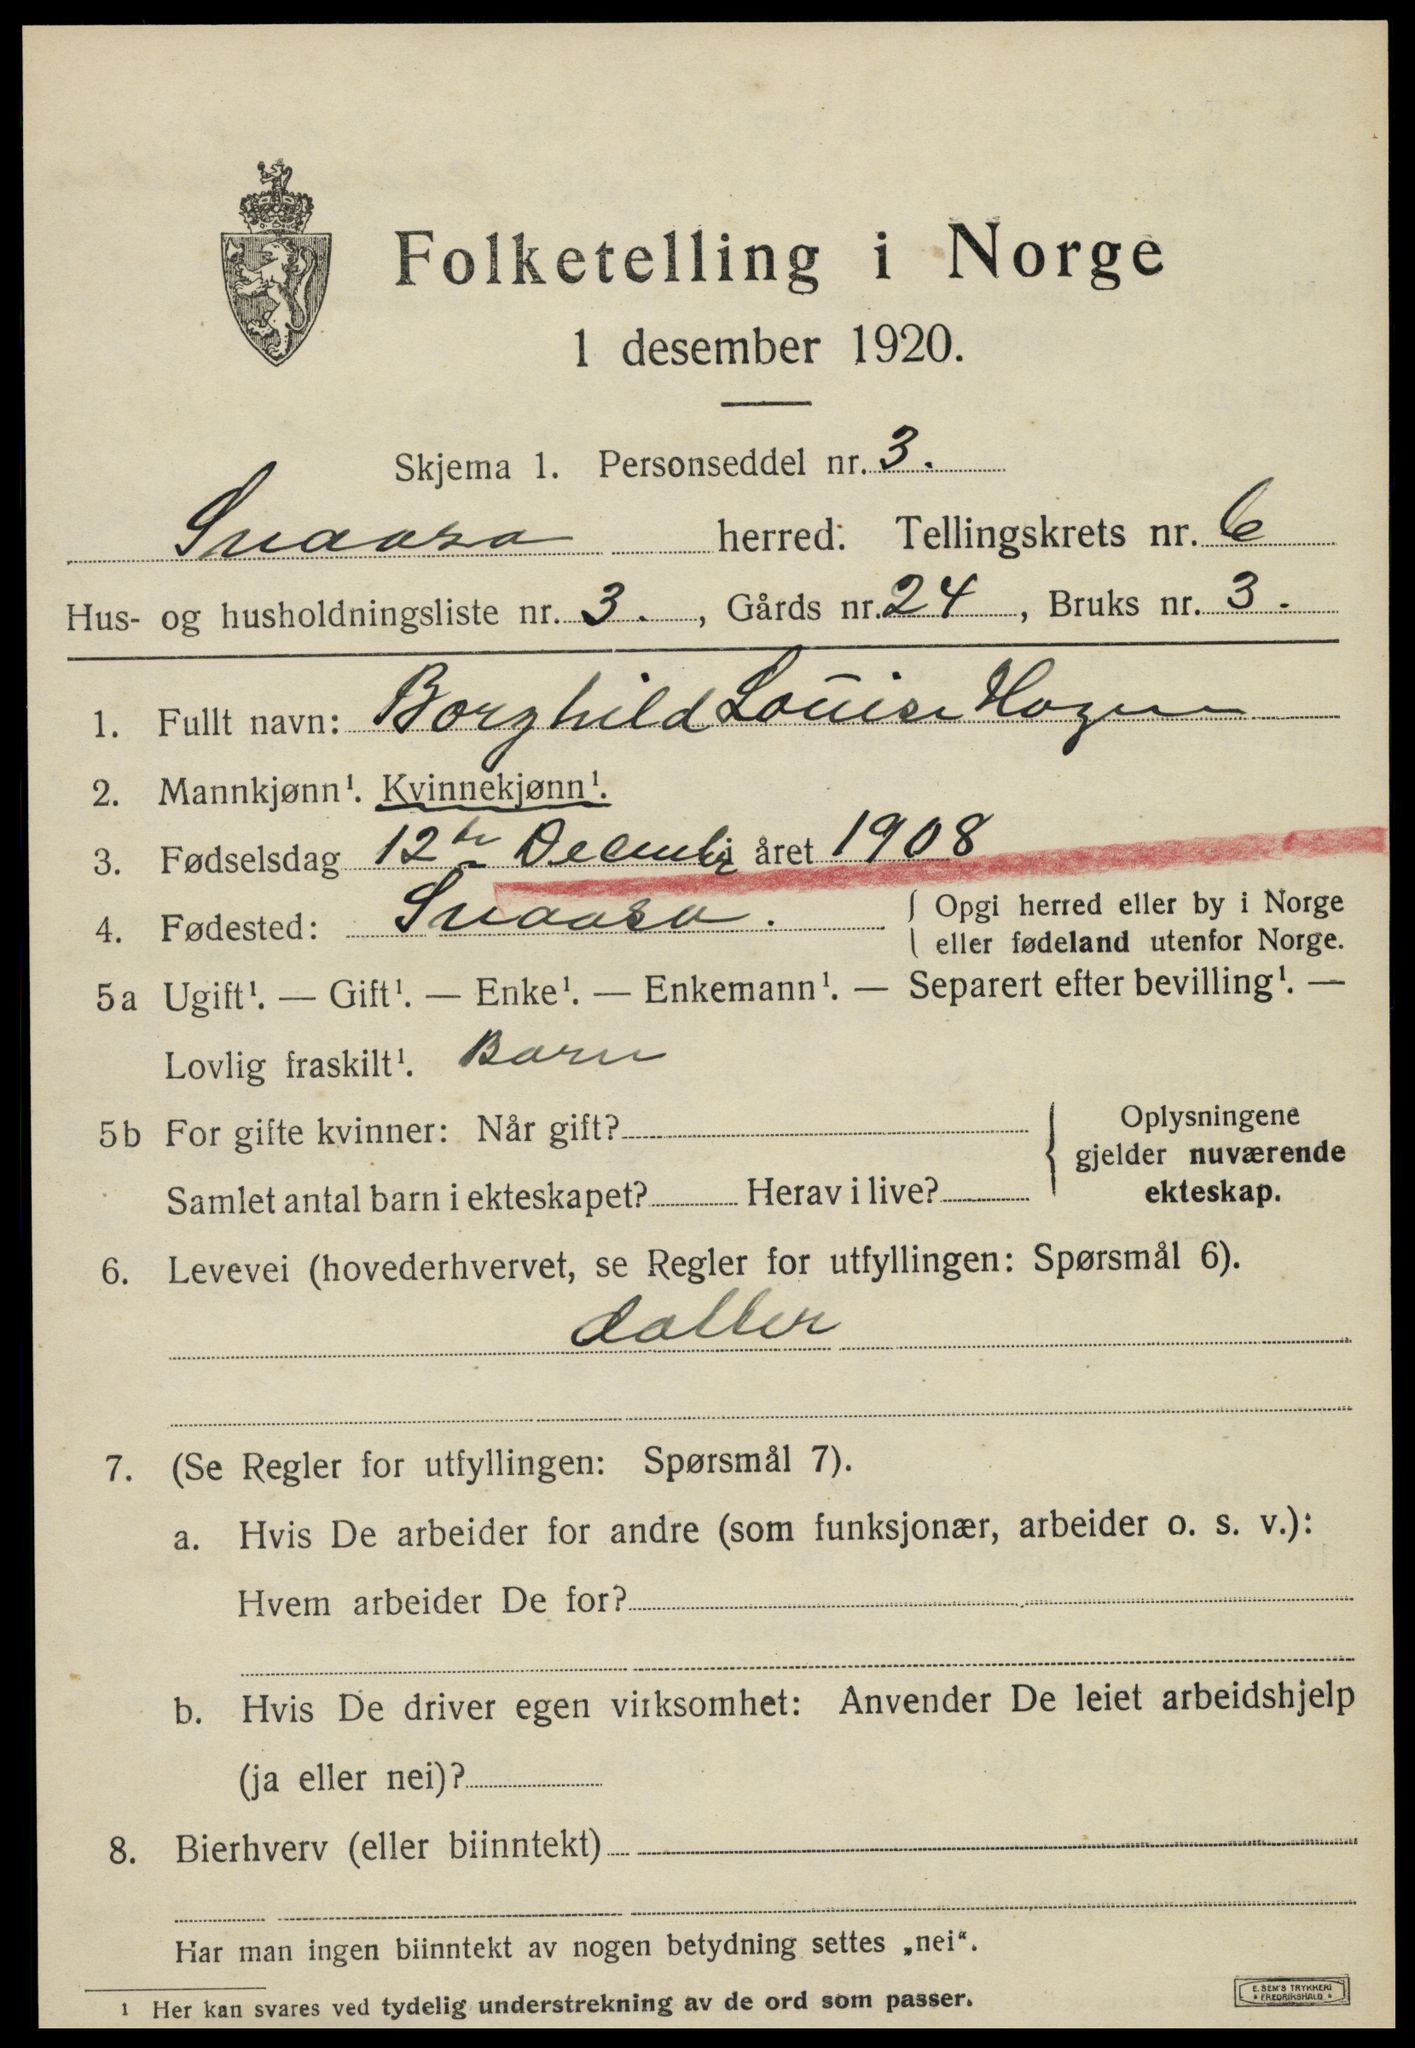 Folketelling i Norge
1 desember 1920.
Skjema 1. Personseddel nr. 3.
Snaasa herred. Tellingskrets nr. 6
Hus- og husholdningsliste nr. 3. , Gårds nr. 24 , Bruks nr. 3.
1. Fullt navn: Borghild Louise Hagen
2. Mannkjønn¹. Kvinnekjønn¹.
3. Fødselsdag 12te December året 1908
4. Fødested: Snaasa. { Opgi herred eller by i Norge
eller fødeland utenfor Norge.
5a Ugift¹. — Gift¹. — Enke¹. — Enkemann¹. — Separert efter bevilling¹. —
Lovlig fraskilt¹. Barn
5b For gifte kvinner: Når gift? } Oplysningene
gjelder nuværende
Samlet antal barn i ekteskapet? Herav i live? ekteskap.
6. Levevei (hovederhvervet, se Regler for utfyllingen: Spørsmål 6).
datter
7. (Se Regler for utfyllingen: Spørsmål 7).
a. Hvis De arbeider for andre (som funksjonær, arbeider o. s. v.):
Hvem arbeider De for?
b. Hvis De driver egen virksomhet: Anvender De leiet arbeidshjelp
(ja eller nei)?
8. Bierhverv (eller biinntekt)
Har man ingen biinntekt av nogen betydning settes „nei“.
1 Her kan svares ved tydelig understrekning av de ord som passer.
E. SEM'S TRYKKERI
* FREDRIKSHALD *